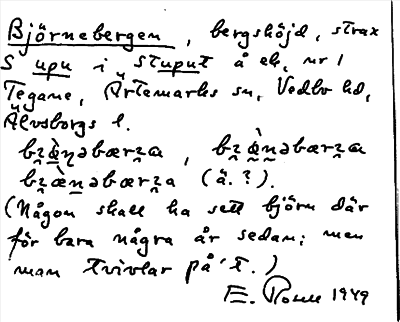 Björnebergen, bergshöjd, strax
S upu i stuput å ek. nr 1
Tegane, Ärtemarks sn, Vedbo hd,
Älvsborgs l.
bʐæ̀ṇəbærʐa, bʐæ̀ṇəbærʐa
bʐæ̀ṇəbærʐa (ä.?).
(Någon skall ha sett björn där
för bara några år sedan; men
man tvivlar på't.)
E. 1949